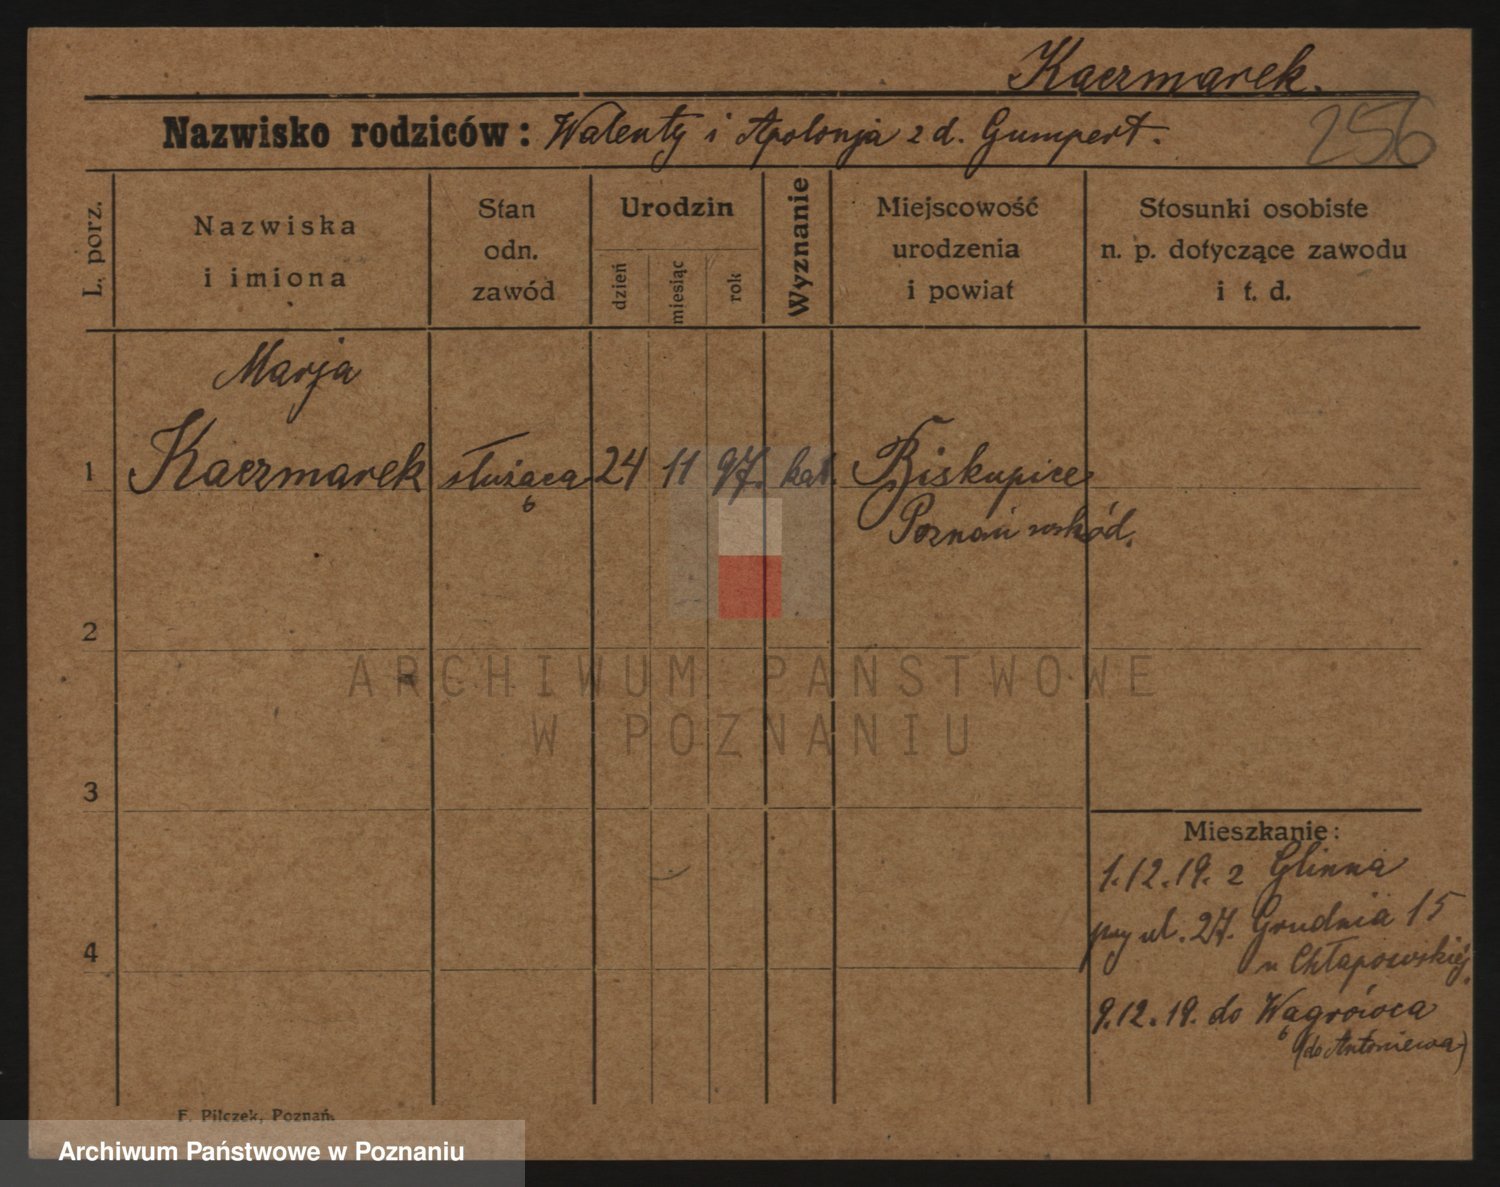 Kaczmarek.
256
Nazwisko rodziców: Walenty i Apolonja z d. Gumpert.
L. porz.
Nazwiska
i imiona
Stan
odn.
zawód
Urodzin
dzień
miesiąc
rok
Wyznanie
Miejscowość
urodzenia
i powiat
Stosunki osobiste
n. p. dotyczące zawodu
i t. d.
Marja
1 Kaczmarek służąca 24 11 97. kat. Biskupice
Poznań wschód.
2
ARCHIWUM PAŃSTWOWE
W POZNANIU
3
Mieszkanie:
1.12.19. z Glinna
przy ul. 27. Grudnia 15
4
u Chłapowskiej.
9.12.19. do Wągrówca
(do Antoniewa)
F. Pilczek, Poznań.
Archiwum Państwowe w Poznaniu